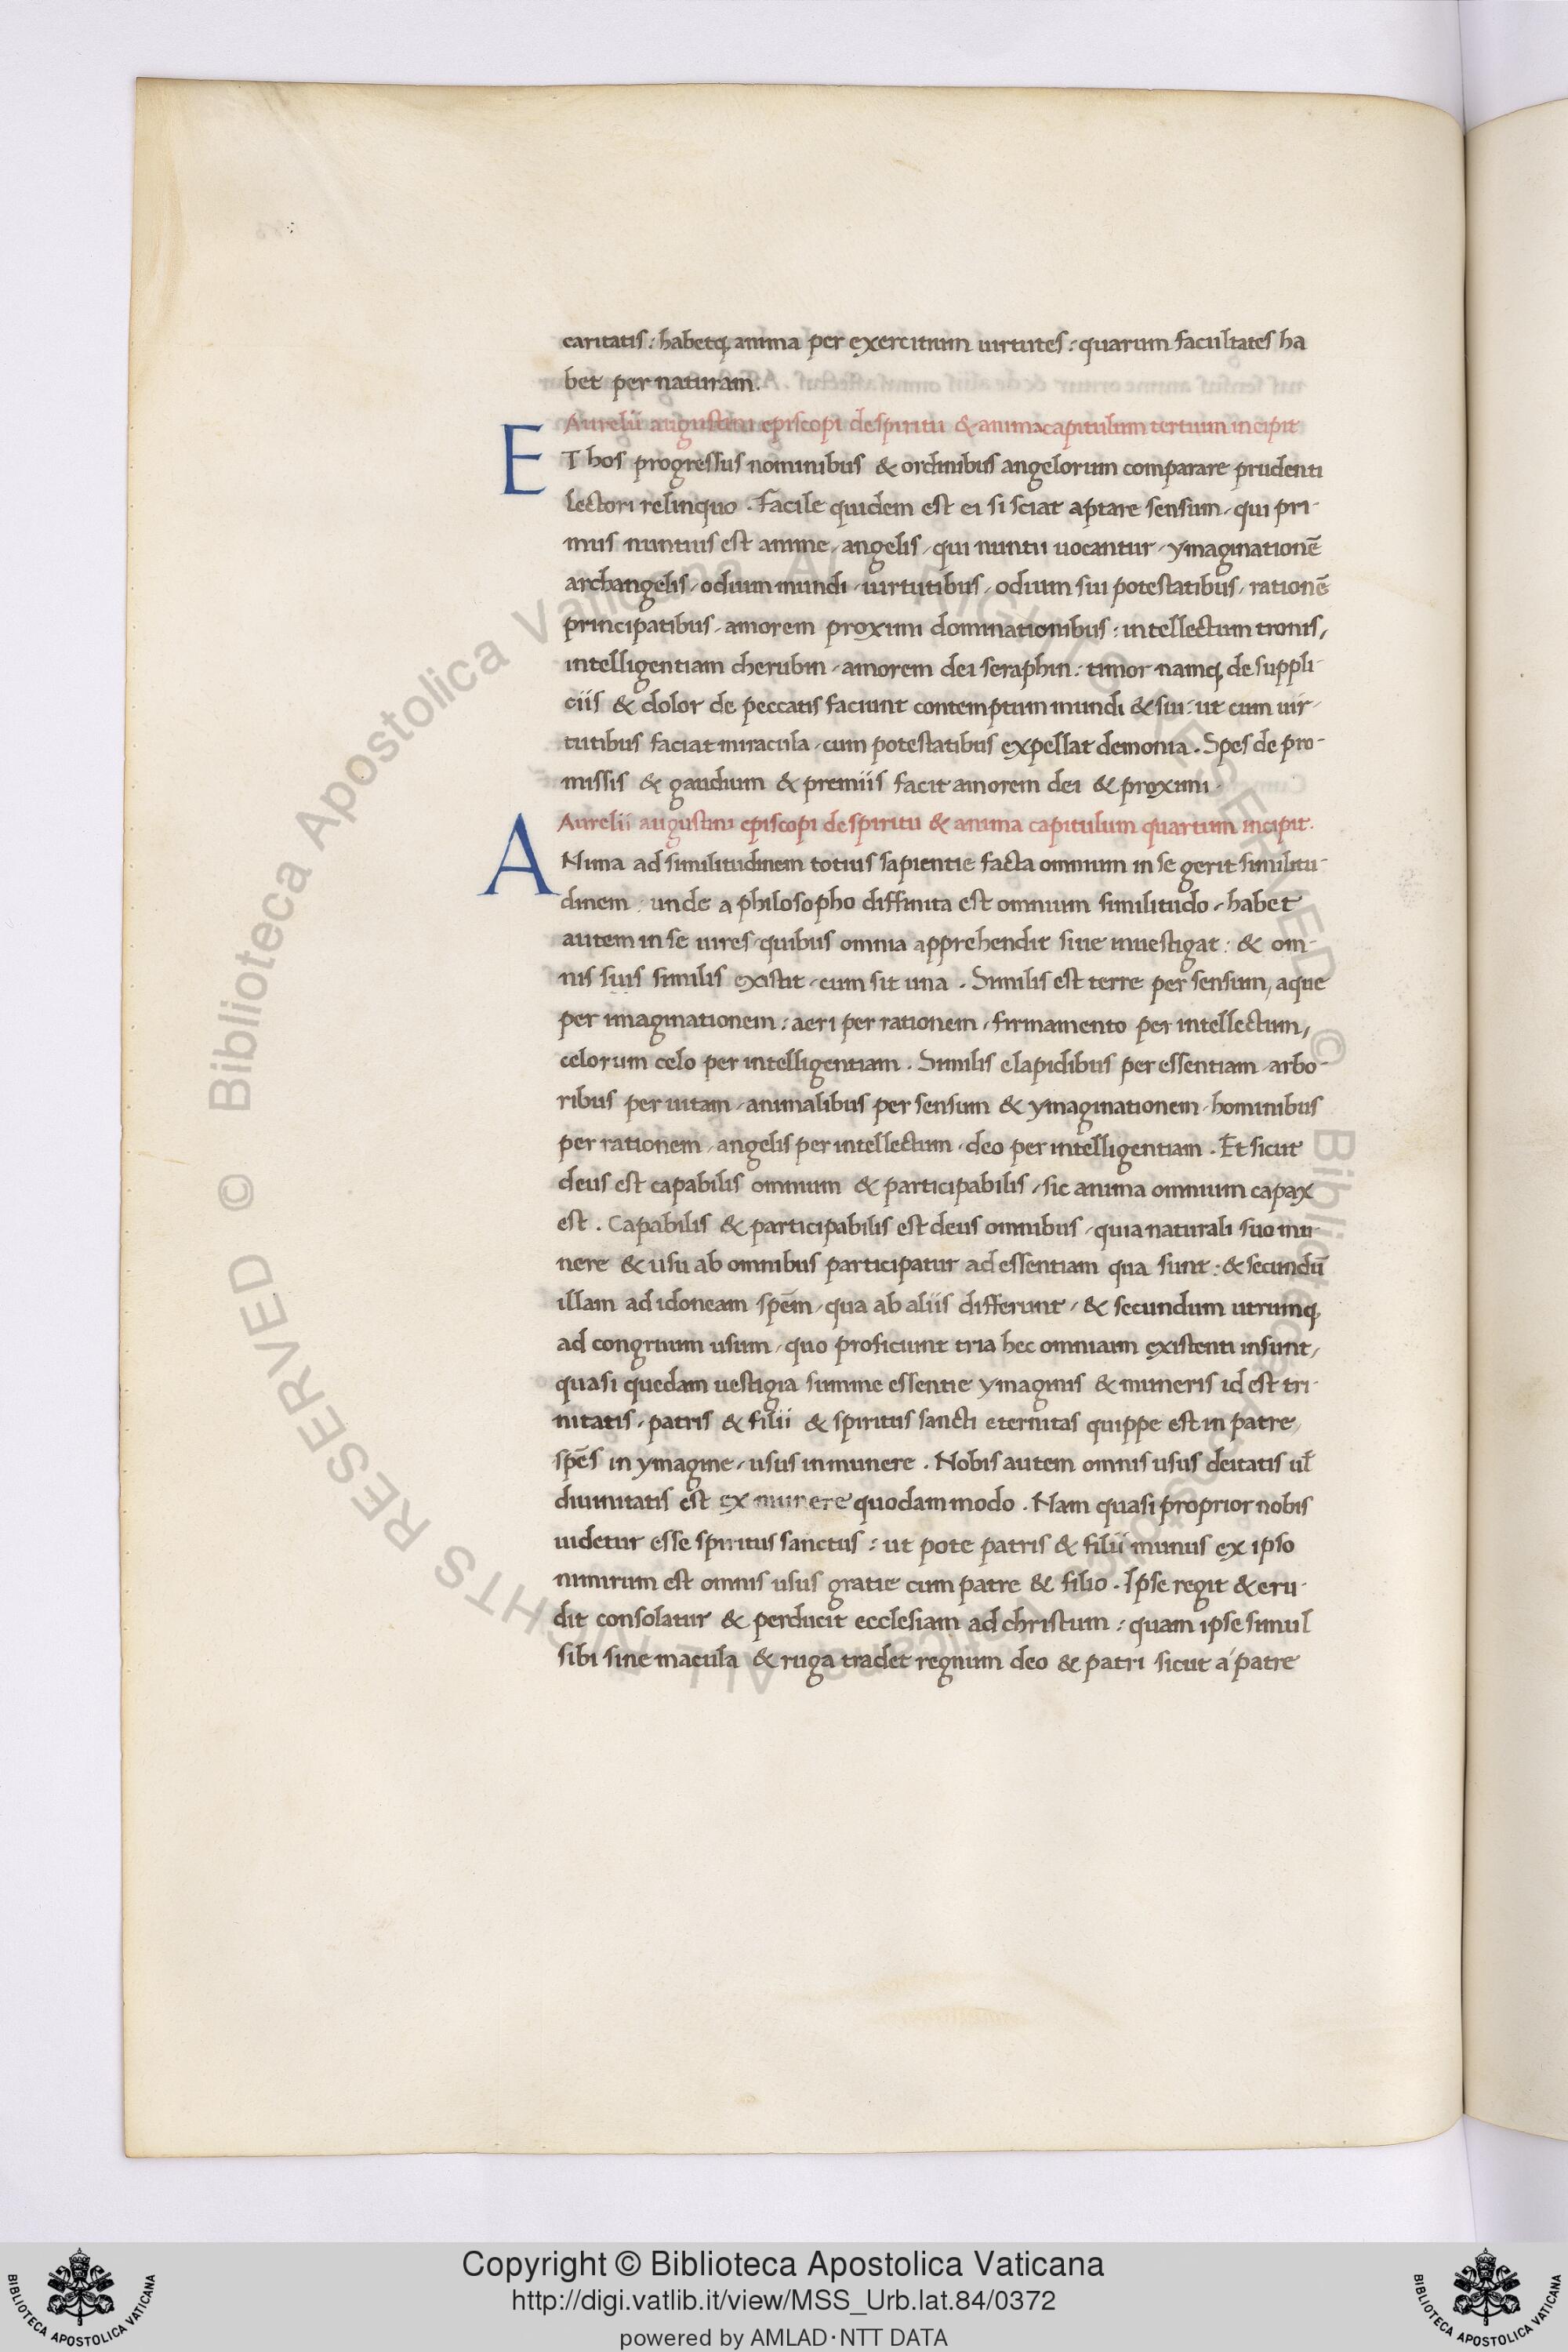 caritatis : habetq; anima per exercitium uirtutes : quarum facultates ha
bet per naturam .
Aurelii augustini episcopi de spiritu & anima capitulum tertium incipit
ET hos progressus nominibus & ordinibus angelorum comparare prudenti
lectori relinquo . Facile quidem est ei si sciat aptare sensum , qui pri-
mus nuntius est anime , angelis , qui nuntii uocantur , ymaginationē
archangelis , odium mundi , uirtutibus , odium sui potestatibus , rationē
principatibus , amorem proximi dominationibus : intellectum tronis ,
intelligentiam cherubin , amorem dei seraphin : timor namq; de suppli-
ciis & dolor de peccatis faciunt contemptum mundi & sui : ut cum uir-
tutibus faciat miracula , cum potestatibus expellat demonia . Spes de pro-
missis & gaudium & premiis facit amorem dei & proximi .
Aurelii augustini episcopi de spiritu & anima capitulum quartum incipit .
ANima ad similitudinem totius sapientie facta omnium in se gerit similitu-
dinem : unde a philosopho diffinita est omnium similitudo , habet
autem in se uires , quibus omnia apprehendit siue inuestigat : & om-
nis suis similis existit , cum sit una . Similis est terre per sensum , aque
per imaginationem : aeri per rationem , firmamento per intellectum ,
celorum celo per intelligentiam . Similis e lapidibus per essentiam , arbo-
ribus per uitam , animalibus per sensum & ymaginationem , hominibus
per rationem , angelis per intellectum , deo per intelligentiam . Et sicut
deus est capabilis omnium & participabilis , sic anima omnium capax
est . Capabilis & participabilis est deus omnibus , quia naturali suo mu-
nere & usu ab omnibus participatur ad essentiam qua sunt : & secundū
illam ad idoneam spēm , qua ab aliis differunt , & secundum utrumq;
ad congruum usum , quo proficiunt tria hec omniaum existenti insunt ,
quasi quedam uestigia summe essentie ymaginis & muneris id est tri-
nitatis , patris & filii & spiritus sancti eternitas quippe est in patre ,
spēs in ymagine , usus in munere . Nobis autem omnis usus deitatis uł
diuinitatis est ex munere quodam modo . Nam quasi proprior nobis
uidetur esse spiritus sanctus : ut pote patris & filii munus ex ipso
nimirum est omnis usus gratie cum patre & filio . Ipse regit & eru-
dit consolatur & perducit ecclesiam ad christum : quam ipse simul
sibi sine macula & ruga tradet regnum deo & patri sicut a patre
© Biblioteca Apostolica Vaticana ALL RIGHTS RESERVED
© Biblioteca Apostolica Vaticana ALL RIGHTS RESERVED
Copyright © Biblioteca Apostolica Vaticana
http://digi.vatlib.it/view/MSS_Urb.lat.84/0372
powered by AMLAD·NTT DATA
BIBLIOTECA APOSTOLICA VATICANA
BIBLIOTECA APOSTOLICA VATICANA